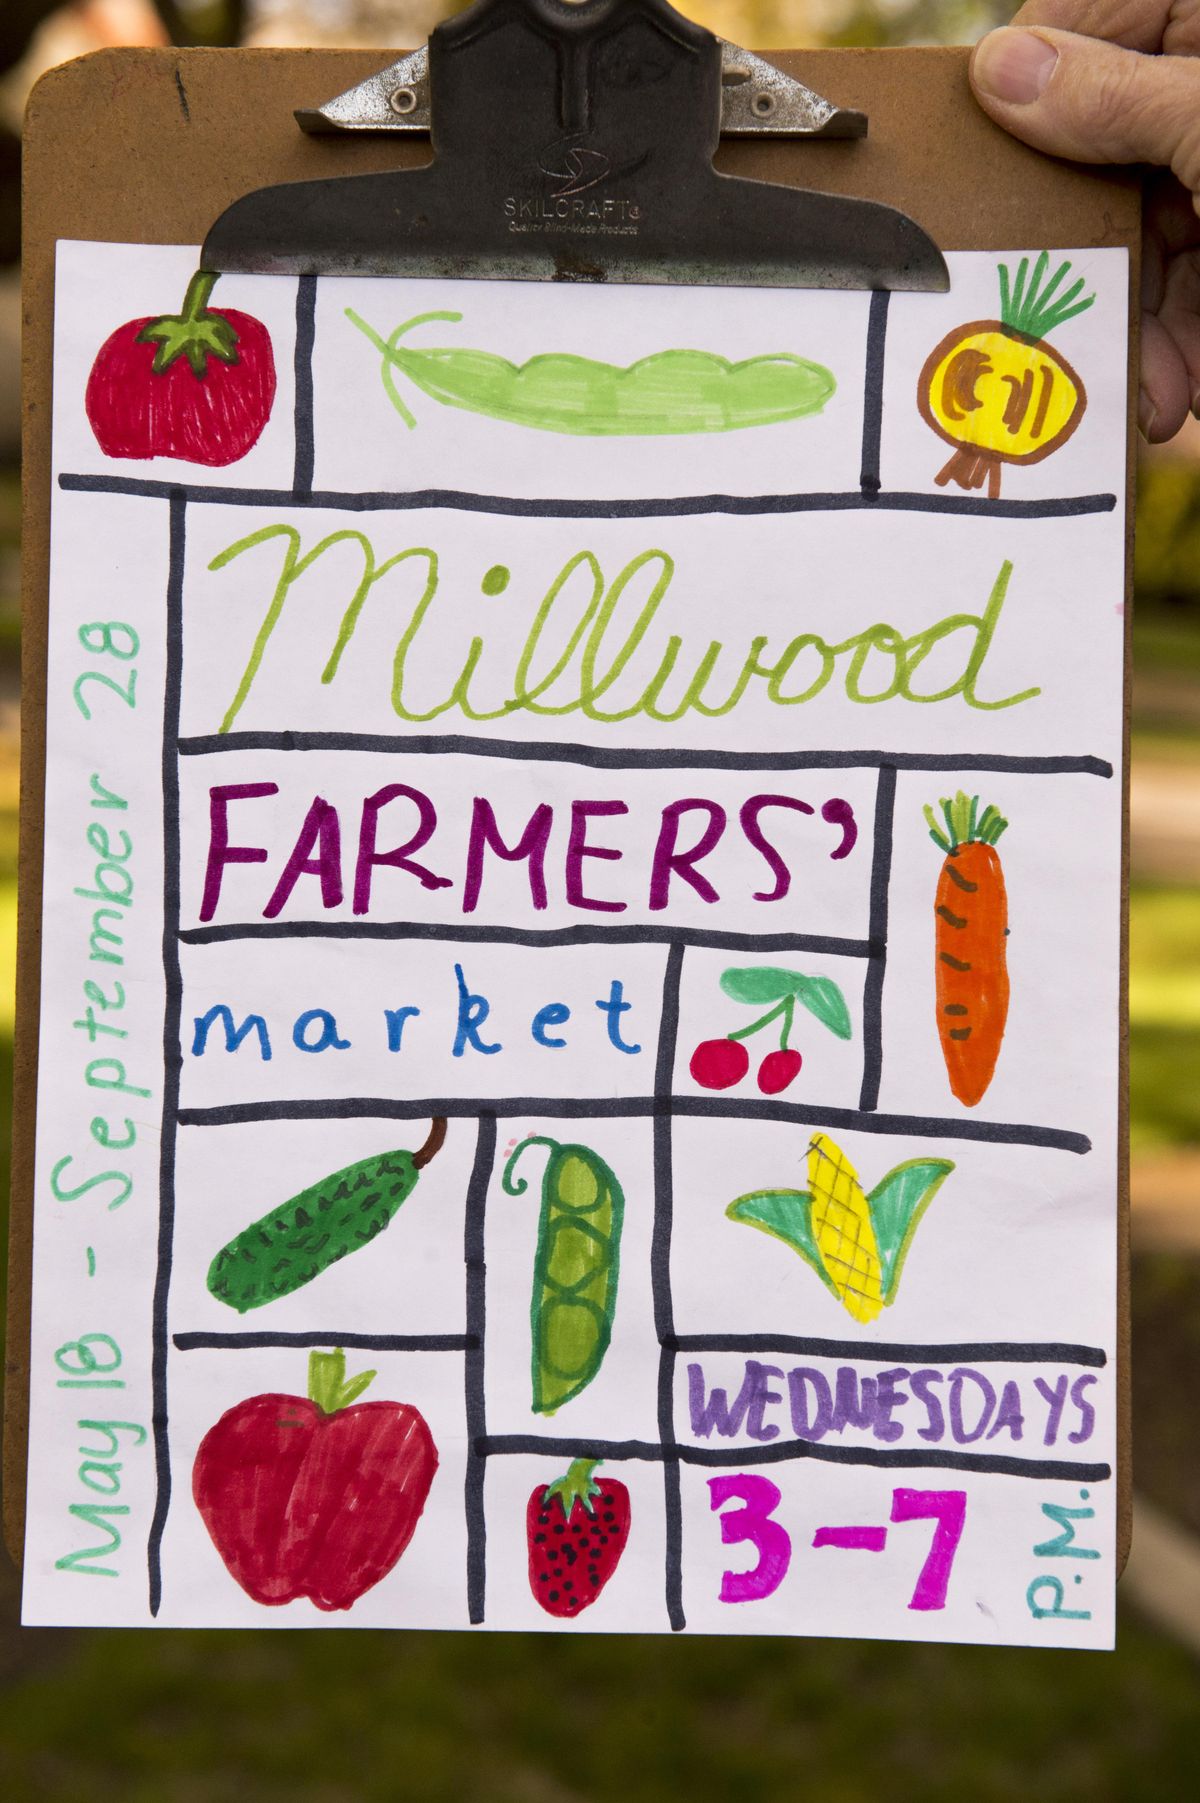 SKILCRAFT®
Quality Blind-Made Products
Millwood
FARMERS'
market
May 18 - September 28
WEDNESDAYS
3-7 P.M.